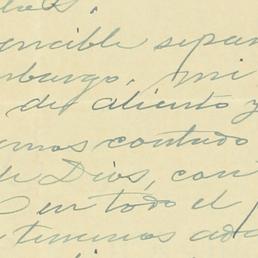 encible separ
mbargo, mi
de aliento y
emos contado
de Dios, con
En todo el
tenemos ad